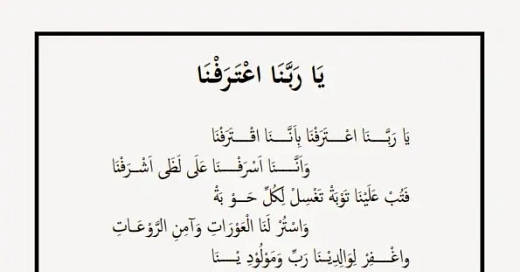 يَا رَبَّنَا اعْتَرَفْنَا
يَا رَبَّـــنَا اعْـــتَرَفْنَا بِأَنَّـــنَا اقْـــتَرَفْنَا
وَاَنَّـــنَا اَسْرَفْـــنَا عَلَى لَظَى اَشْـرَفْنَا
فَتُبْ عَلَيْنَا تَوْبَةْ تَغْسِلْ لِكُلِّ حَـــوْ بَةْ
وَاسْتُرْ لَنَا الْعَوْرَاتِ وَآمِنِ الرَّوْعَـاتِ
واغْـــفِرْ لِوَالِدِيْـنَا رَبِّ وَمَوْلُوْدِ يْـــنَا